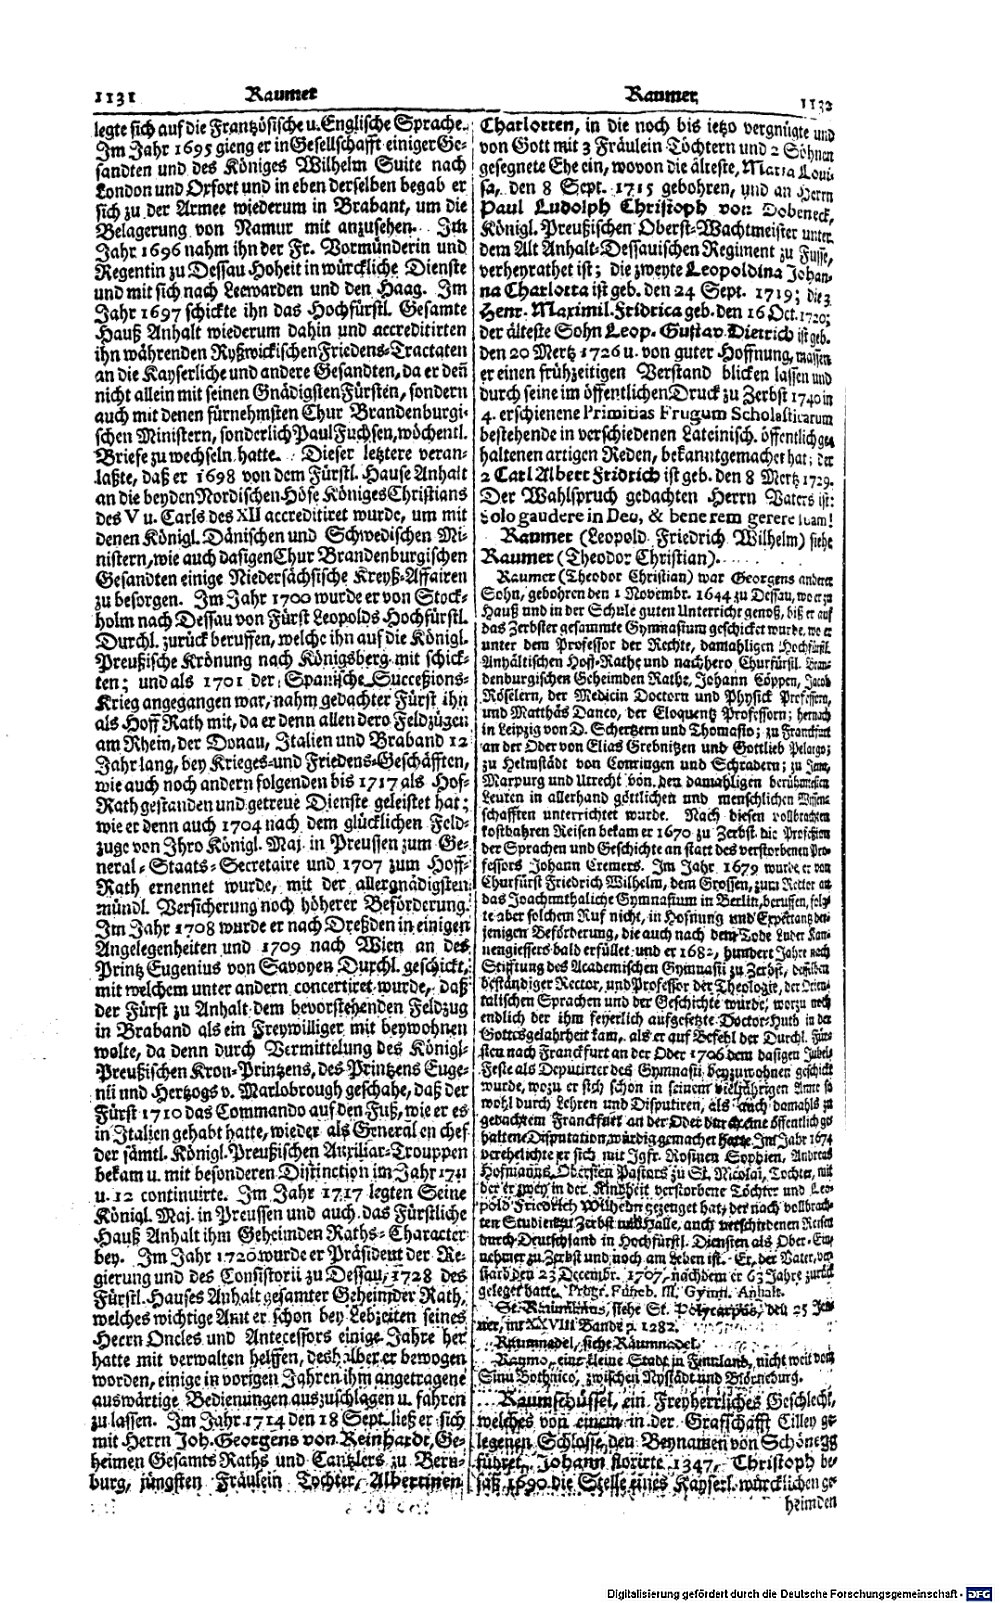 1131 Raumer
Raumer 1132
legte sich auf die Frantzösische u. Englische Sprache.
Im Jahr 1695 gieng er in Gesellschafft einiger Ge-
sandten und des Königes Wilhelm Suite nach
London und Oxfort und in eben derselben begab er
sich zu der Armee wiederum in Brabant, um die
Belagerung von Namur mit anzusehen. Im
Jahr 1696 nahm ihn der Fr. Vormünderin und
Regentin zu Dessau Hoheit in würckliche Dienste
und mit sich nach Leewarden und den Haag. Im
Jahr 1697 schickte ihn das Hochfürstl. Gesamte
Hauß Anhalt wiederum dahin und accreditirten
ihn währenden Ryßwickischen Friedens-Tractaten
an die Kayserliche und andere Gesandten, da er deñ
nicht allein mit seinen Gnädigsten Fürsten, sondern
auch mit denen fürnehmsten Chur Brandenburgi-
schen Ministern, sonderlich Paul Fuchsen, wöchentl.
Briefe zu wechseln hatte. Dieser letztere veran-
laßte, daß er 1698 von dem Fürstl. Hause Anhalt
an die beyden Nordischen Höfe Königes Christians
des V u. Carls des XII accreditiret wurde, um mit
denen Königl. Dänischen und Schwedischen Mi-
nistern, wie auch dasigen Chur Brandenburgischen
Gesandten einige Niedersächsische Kreyß-Affairen
zu besorgen. Im Jahr 1700 wurde er von Stock-
holm nach Dessau von Fürst Leopolds Hochfürstl.
Durchl. zurück beruffen, welche ihn auf die Königl.
Preußische Krönung nach Königsberg mit schick-
ten; und als 1701 der Spanische Succeßions-
Krieg angegangen war, nahm gedachter Fürst ihn
als Hoff Rath mit, da er denn allen dero Feldzügen
am Rhein, der Donau, Italien und Braband 12
Jahr lang, bey Krieges- und Friedens-Geschäfften,
wie auch noch andern folgenden bis 1717 als Hof-
Rath gestanden und getreue Dienste geleistet hat;
wie er denn auch 1704 nach dem glücklichen Feld-
zuge von Ihro Königl. Maj. in Preussen zum Ge-
neral-Staats-Secretaire und 1707 zum Hoff-
Rath ernennet wurde, mit der allergnädigsten
mündl. Versicherung noch höherer Beförderung.
Im Jahr 1708 wurde er nach Dreßden in einigen
Angelegenheiten und 1709 nach Wien an des
Printz Eugenius von Savoyen Durchl. geschickt,
mit welchem unter andern concertiret wurde, daß
der Fürst zu Anhalt dem bevorstehenden Feldzug
in Braband als ein Freywilliger mit beywohnen
wolte, da denn durch Vermittelung des Königl.
Preußischen Kron-Printzens, des Printzens Euge-
nii und Hertzogs v. Marlobrough geschahe, daß der
Fürst 1710 das Commando auf den Fuß, wie er es
in Italien gehabt hatte, wieder als General en chef
der sämtl. Königl. Preußischen Auxiliar-Trouppen
bekam u. mit besonderen Distinction im Jahr 1711
u. 12 continuirte. Im Jahr 1717 legten Seine
Königl. Maj. in Preussen und auch das Fürstliche
Hauß Anhalt ihm Geheimden Raths-Character
bey. Im Jahr 1720 wurde er Präsident der Re-
gierung und des Consistorii zu Dessau, 1728 des
Fürstl. Hauses Anhalt gesamter Geheimder Rath,
welches wichtige Amt er schon bey Lebzeiten seines
Herrn Oncles und Antecessors einige Jahre her
hatte mit verwalten helffen, deshalber er bewogen
worden, einige in vorigen Jahren ihm angetragene
auswärtige Bedienungen auszuschlagen u. fahren
zu lassen. Im Jahr 1714 den 18 Sept. ließ er sich
mit Herrn Joh. Georgens von Reinhardt, Ge-
heimen Gesamts Raths und Cantzlers zu Bern-
burg, jüngsten Fräulein Tochter, Albertinen
Charlotten, in die noch bis ietzo vergnügte und
von Gott mit 3 Fräulein Töchtern und 2 Söhnen
gesegnete Ehe ein, wovon die älteste, Maria Loui-
sa, den 8 Sept. 1715 gebohren, und an Herrn
Paul Ludolph Christoph von Dobeneck,
Königl. Preußischen Oberst-Wachtmeister unter
dem Alt Anhalt-Dessauischen Regiment zu Fusse,
verheyrathet ist; die zweyte Leopoldina Johan-
na Charlotta ist geb. den 24 Sept. 1719; die 3
Henr. Maximil. Fridrica geb. den 16 Oct. 1720;
der älteste Sohn Leop. Gustav Dietrich ist geb.
den 20 Mertz 1726 u. von guter Hoffnung, massen
er einen frühzeitigen Verstand blicken lassen und
durch seine im öffentlichen Druck zu Zerbst 1740 in
4. erschienene Primitias Frugum Scholasticarum
bestehende in verschiedenen Lateinisch. öffentlich ge-
haltenen artigen Reden, bekannt gemachet hat; der
2 Carl Albert Fridrich ist geb. den 8 Mertz 1729.
Der Wahlspruch gedachten Herrn Vaters ist:
Solo gaudere in Deo, & bene rem gerere suam!
Raumer (Leopold Friedrich Wilhelm) siehe
Raumer (Theodor Christian).
Raumer (Theodor Christian) war Georgens anderer
Sohn, gebohren den 1 Novembr. 1644 zu Dessau, wo er zu
Hauß und in der Schule guten Unterricht genoß, biß er auf
das Zerbster gesammte Gymnasium geschicket wurde, wo er
unter dem Professor der Rechte, damahligen Hochfürstl.
Anhältischen Hoff-Rathe und nachhero Churfürstl. Bran-
denburgischen Geheimden Rathe, Johann Cöppen, Jacob
Röselern, der Medicin Doctorn und Physick Professorn,
und Matthäs Danco, der Eloquentz Professorn; hernach
in Leipzig von D. Schertzern und Thomasio; zu Franckfurt
an der Oder von Elias Grebnitzen und Gottlieb Pelargo;
zu Helmstädt von Conringen und Schradern; zu Jena,
Marpurg und Utrecht von den damahligen berühmtesten
Leuten in allerhand göttlichen und menschlichen Wissen-
schafften unterrichtet wurde. Nach diesen vollbrachten
kostbahren Reisen bekam er 1670 zu Zerbst die Profeßion
der Sprachen und Geschichte an statt des verstorbenen Pro-
fessors Johann Cremers. Im Jahr 1679 wurde er von
Churfürst Friedrich Wilhelm, dem Grossen, zum Rector an
das Joachimthaliche Gymnasium in Berlin, beruffen, folg-
te aber solchem Ruf nicht, in Hofnung und Expectantz der-
jenigen Beförderung, die auch nach dem Tode Luder Kan-
nengiessers bald erfüllet und er 1682, hundert Jahre nach
Stiftung des Academischen Gymnasii zu Zerbst, desselben
beständiger Rector, und Professor der Theologie, der Orien-
talischen Sprachen und der Geschichte wurde, worzu noch
endlich der ihm feyerlich aufgesetzte Doctor-Huth in der
Gottsgelahrheit kam, als er auf Befehl der Durchl. Für-
sten nach Franckfurt an der Oder 1706 dem dasigen Jubel-
Feste als Deputirter des Gymnasii beyzuwohnen geschickt
wurde, wozu er sich schon in seinem vieljährigen Amte so
wohl durch Lehren und Disputiren, als auch damahls zu
gedachtem Franckfurt an der Oder durch eine öffentlich ge-
haltene Disputation, würdig gemachet hatte. Im Jahr 1674
verehelichte er sich mit Jgfr. Rosinen Sophien, Andreas
Hofmanns, Obersten Pastors zu St. Nicolai, Tochter, mit
der er zwey in der Kindheit verstorbene Töchter und Leo-
pold Friedrich Wilhelm gezeuget hat, der nach vollbrach-
ten Studien zu Zerbst und Halle, auch verschiedenen Reisen
durch Deutschland in Hochfürstl. Diensten als Ober-Ein-
nehmer zu Zerbst und noch am Leben ist. Er, der Vater, ver-
starb den 23 Decembr. 1707, nachdem er 63 Jahre zurück
geleget hatte. Progr. Funeb. Ill. Gymn. Anhalt.
St. Raumarus, siehe St. Polycarpus, den 25 Jen-
ner, im XXVIII Bande p. 1282.
Raumnadel, siehe Räumnadel.
Raumo, eine kleine Stadt in Finnland, nicht weit vom
Sinu Bothnico, zwischen Nystädt und Biörneburg.
Raumschüssel, ein Freyherrliches Geschlecht,
welches von einem in der Grafschafft Cilley ge-
legenen Schlosse, den Beynamen von Schönegg
führet. Johann florirte 1347, Christoph be-
saß 1690 die Stelle eines Kayserl. würcklichen ge-
heimden
Digitalisierung gefördert durch die Deutsche Forschungsgemeinschaft - DFG